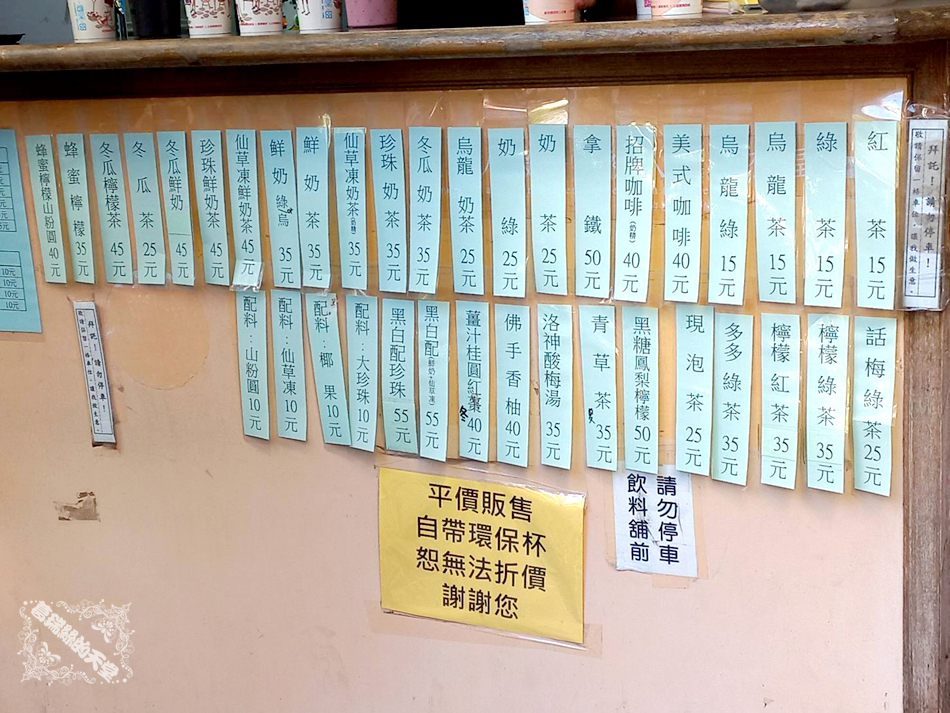 紅茶15元
綠茶15元
烏龍茶15元
烏龍綠15元
美式咖啡40元
招牌咖啡(奶精)40元
拿鐵50元
奶茶25元
奶綠25元
烏龍奶茶25元
冬瓜奶茶35元
珍珠奶茶35元
仙草凍奶茶(奶精)35元
鮮奶茶35元
鮮奶綠烏35元
仙草凍鮮奶茶45元
珍珠鮮奶茶45元
冬瓜鮮奶45元
冬瓜茶25元
冬瓜檸檬茶45元
蜂蜜檸檬35元
蜂蜜檸檬山粉圓40元
話梅綠茶25元
檸檬綠茶35元
檸檬紅茶35元
多多綠茶35元
現泡茶25元
黑糖鳳梨檸檬50元
青草茶35元
洛神酸梅湯35元
佛手香柚40元
薑汁桂圓紅棗40元
冬
黑白配(鮮奶+仙草凍)55元
黑白配珍珠55元
配料:大珍珠10元
配料:椰果10元
配料:仙草凍10元
配料:山粉圓10元
10元
10元
10元
10元
拜託!請勿停車!
拜託!請勿停車!
請勿停車
飲料舖前
平價販售
自帶環保杯
恕無法折價
謝謝您